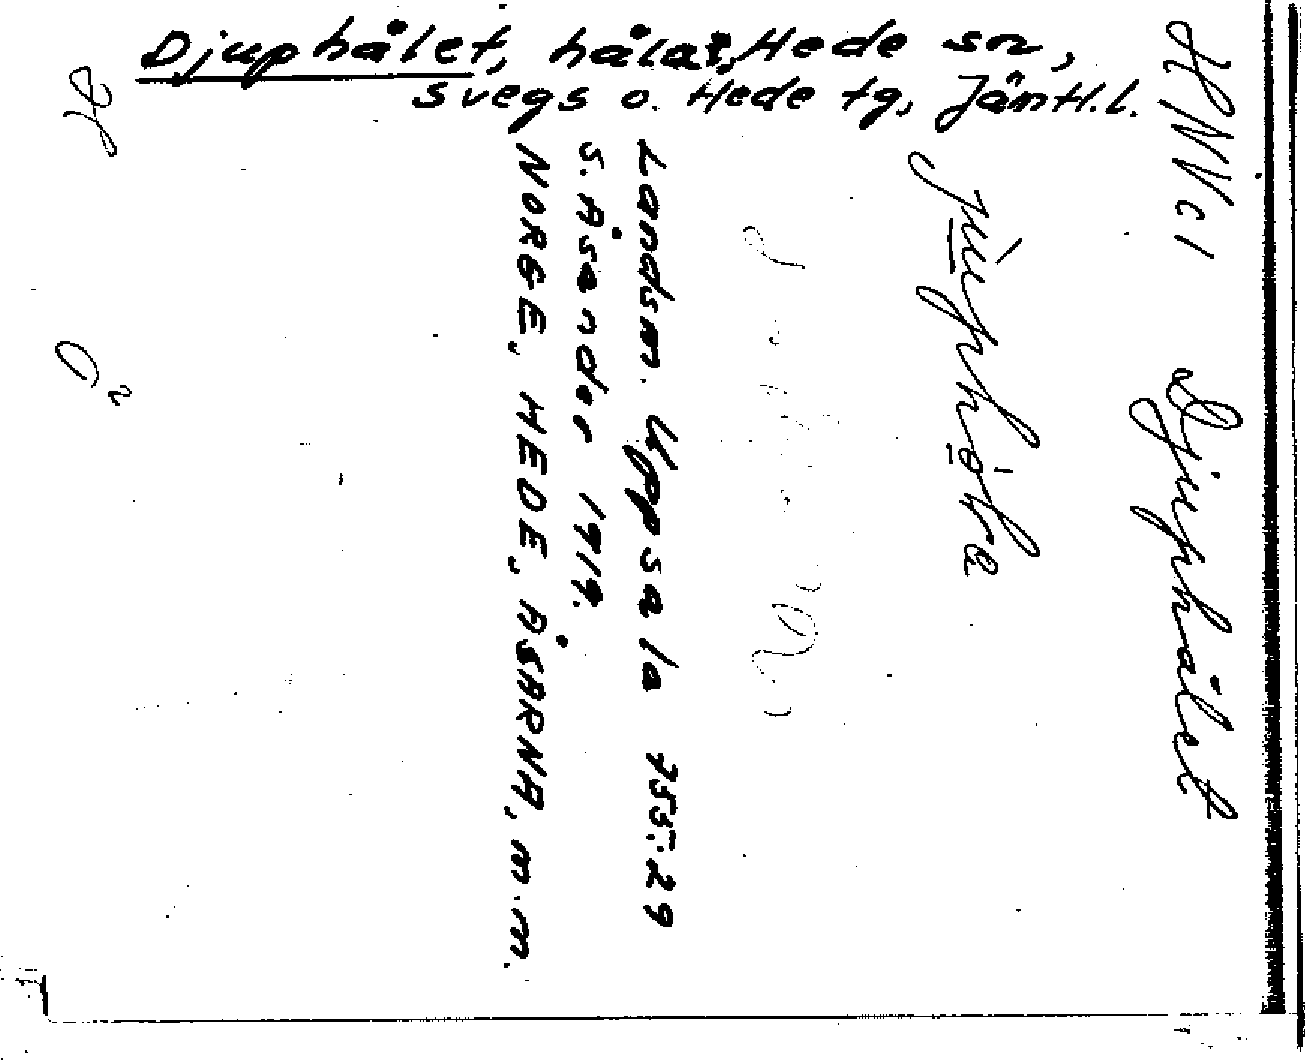 Djuphålet, håla, Hede sn,
Svegs o. Hede tg, Jämtl. l.
HNVc1 Djuphålet
Landsm. Uppsala 755:29
S. Åsander 1919.
NORGE, HEDE, ÅSARNA, m.m.